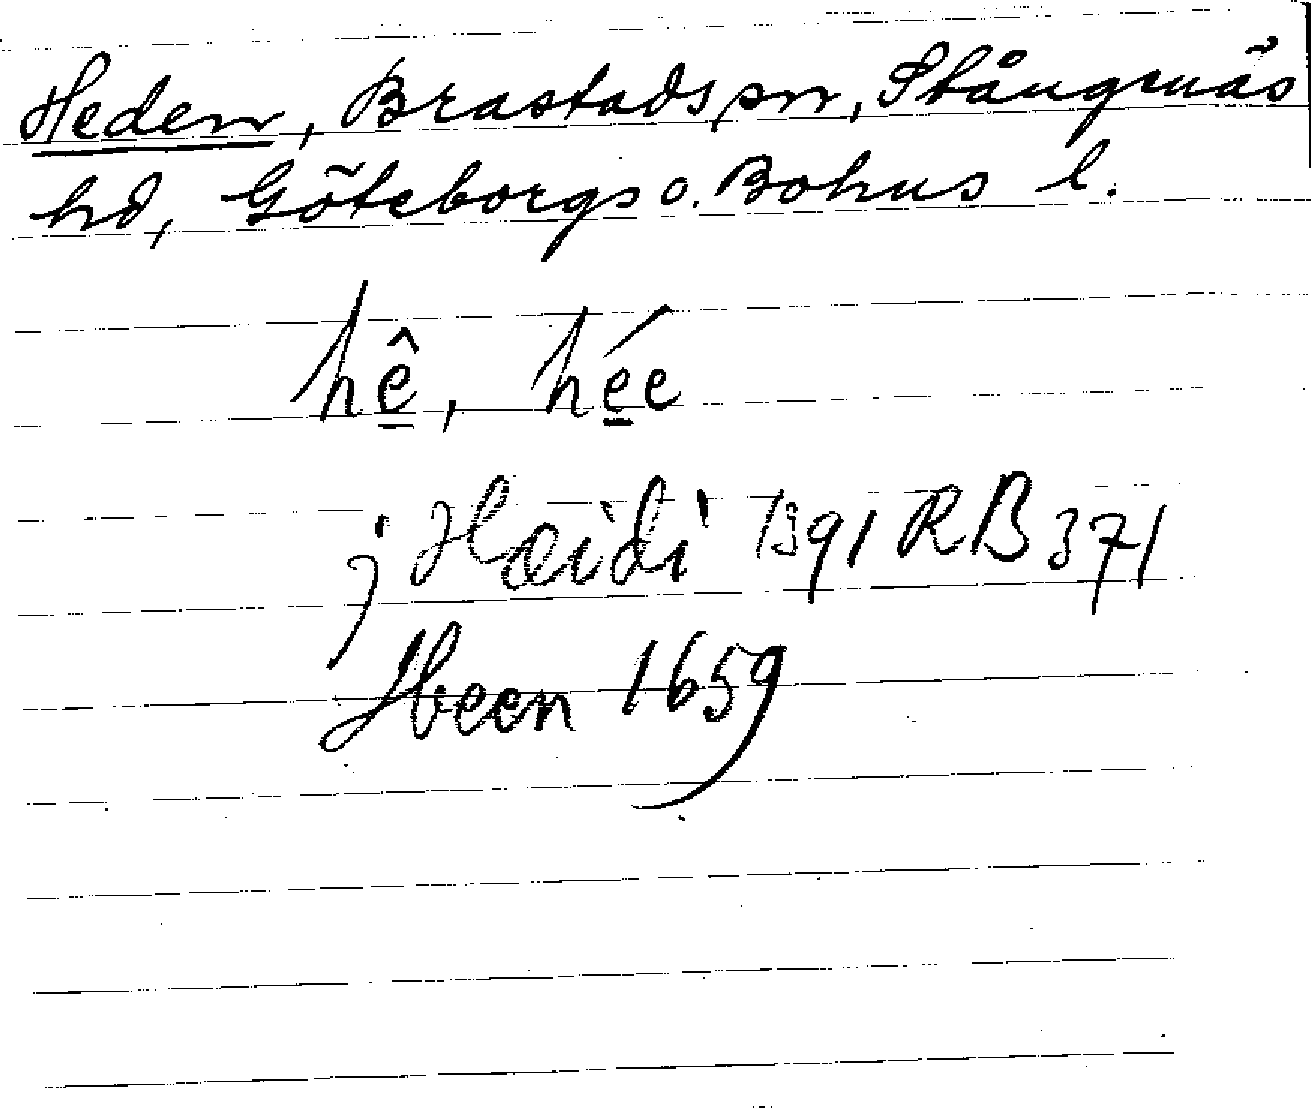 Heden, Brastads sn, Stångenäs
hd, Göteborgs o. Bohus l.
hê, hée
j Hæidi 1391 RB 371
Heen 1659